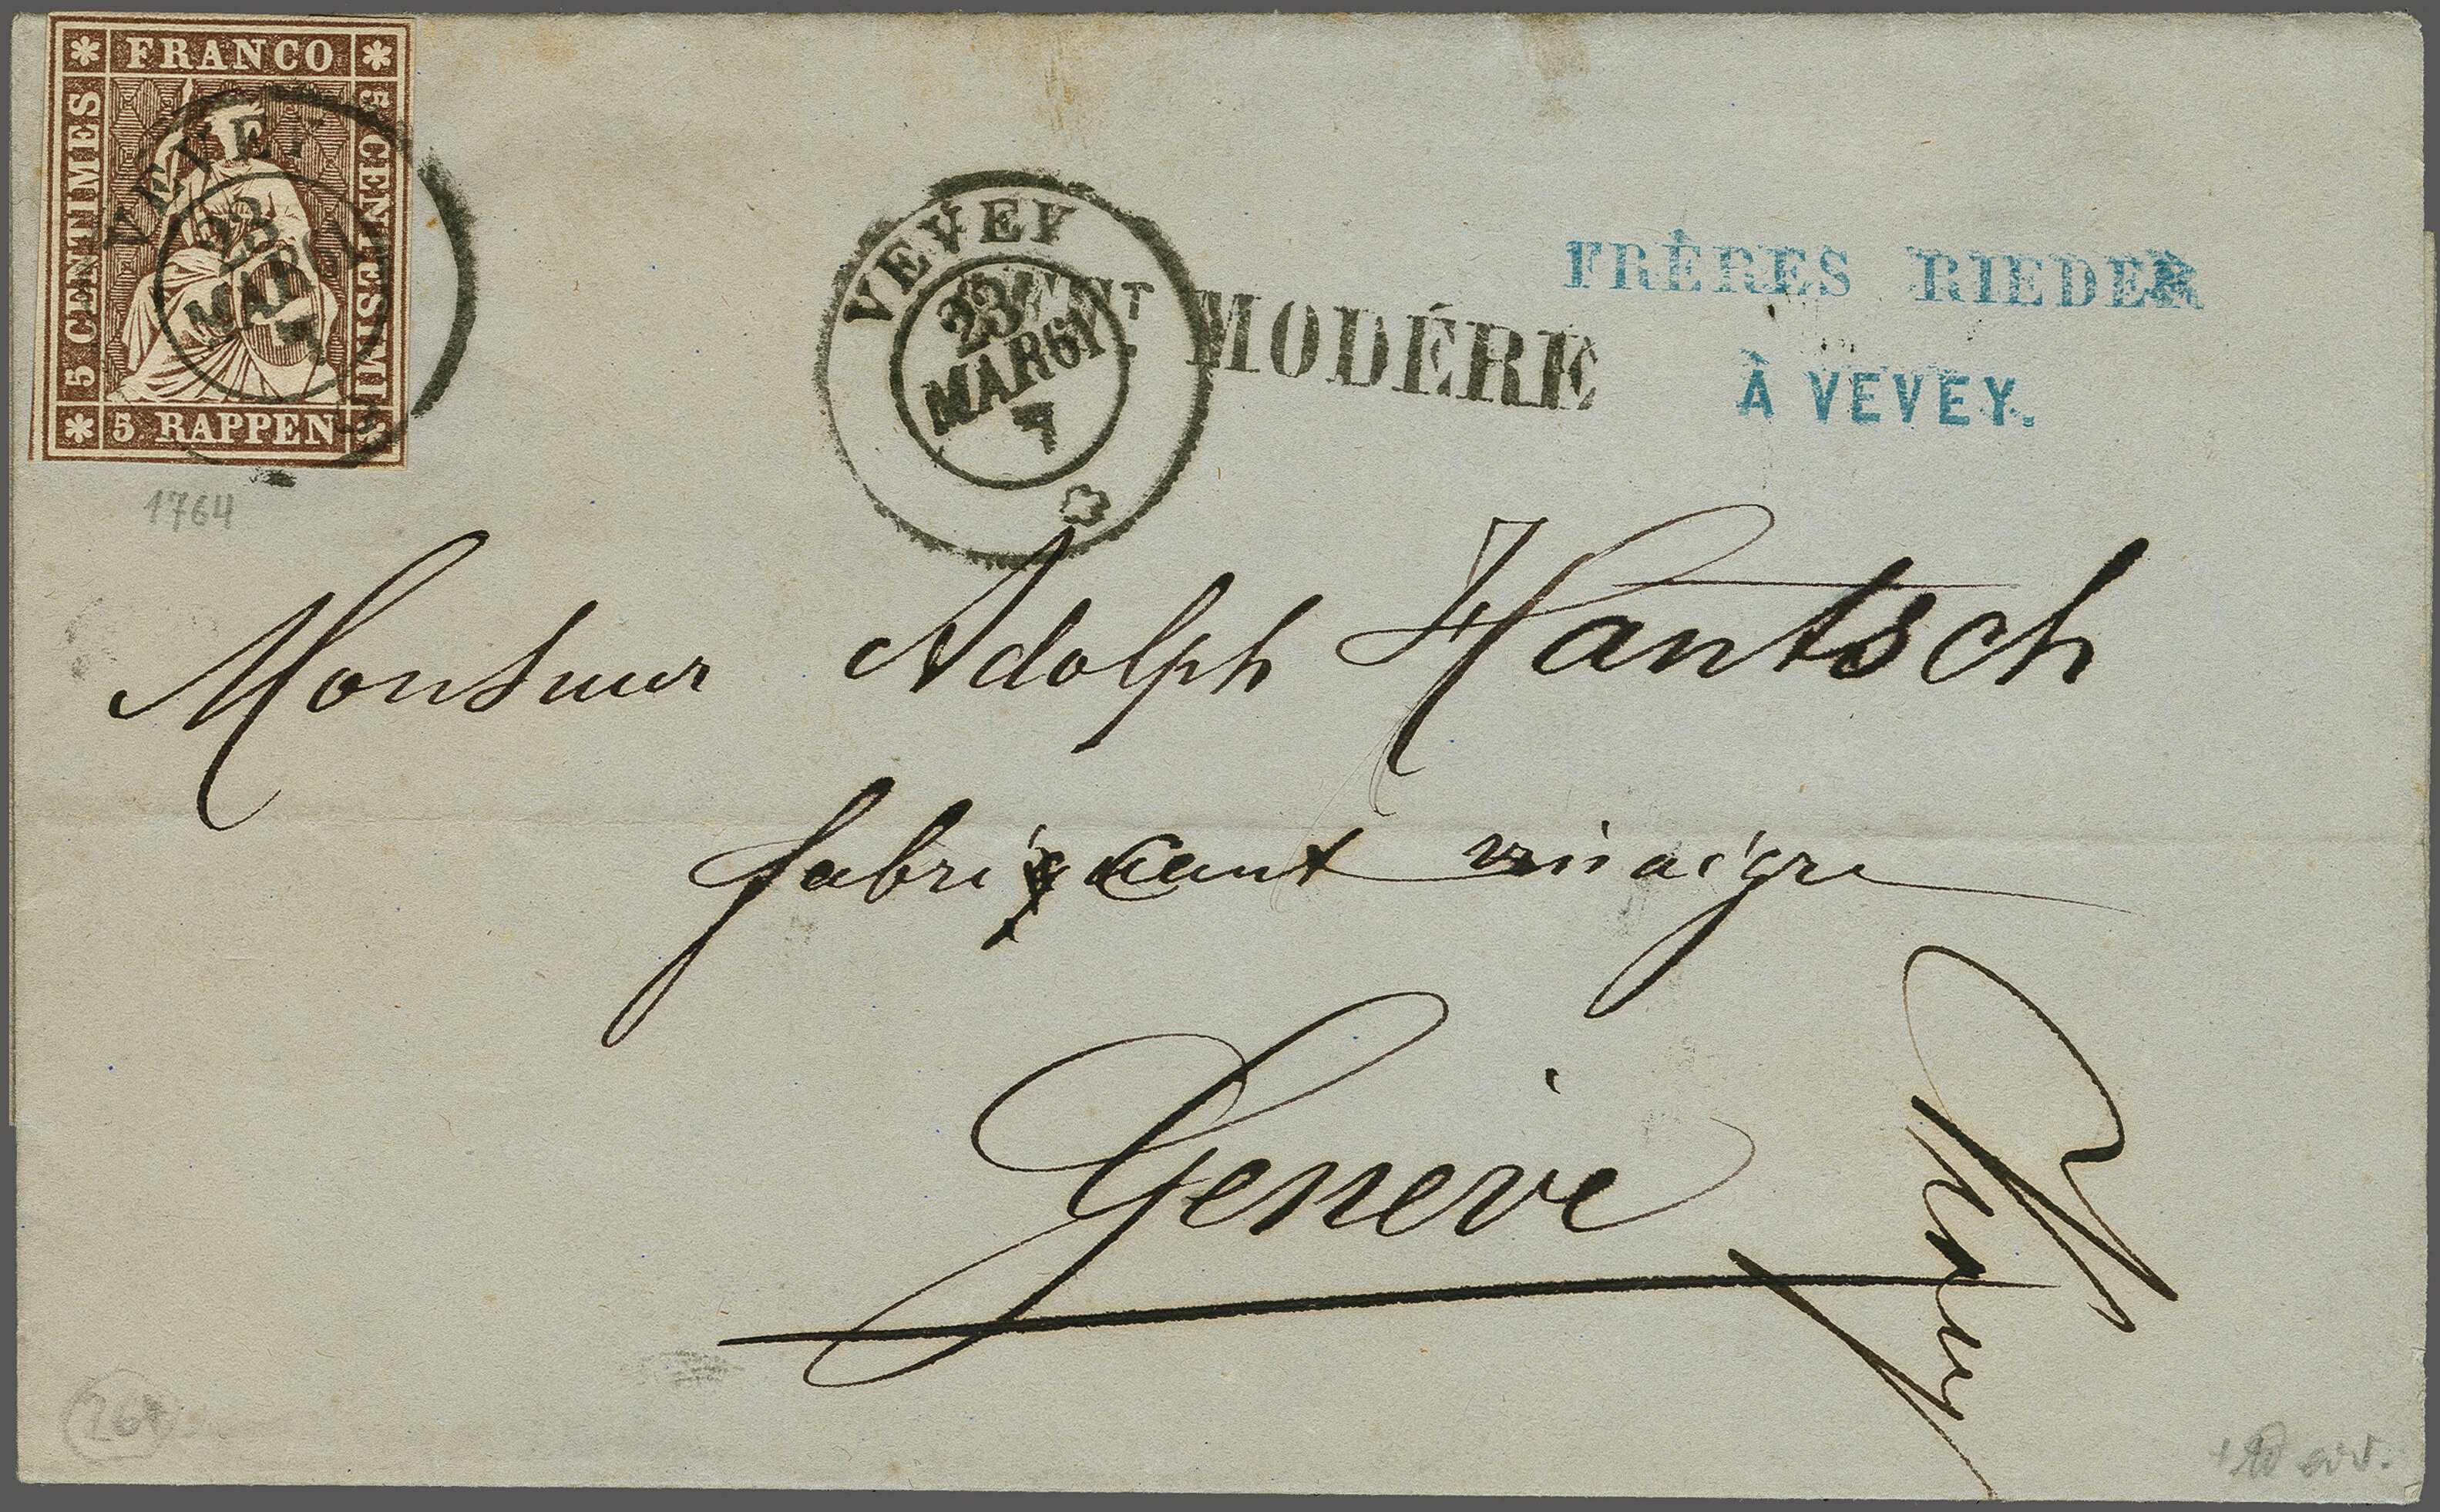 FRANCO
5 CENTIMES
5 CENTESIMI
5 RAPPEN
VEVEY
23
MAR 61
7
VEVEY
23
MAR 61
7
MODÉRE
FRÈRES RIEDER
À VEVEY.
1764
Monsieur Adolph Hantsch
fabricant vinaigre
Genève